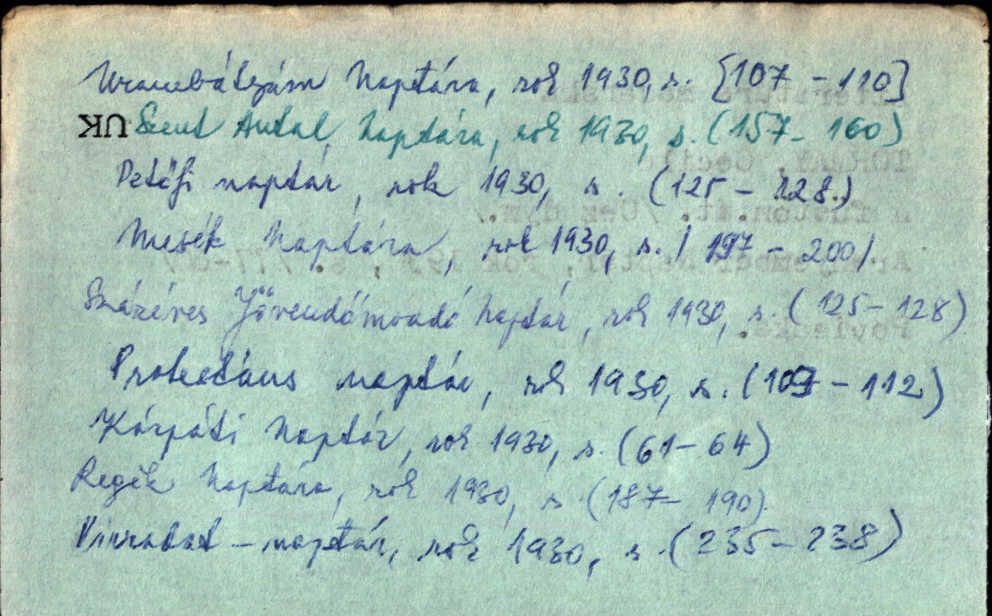 Urambátyám Naptára, rok 1930, s. [107 - 110]
UK Szent Antal Naptára, rok 1930, s. (157 - 160)
Petőfi naptár, rok 1930, s. (125 - 128.)
Mesék Naptára, rok 1930, s. / 197 - 200/
Százéves Jövendőmondó Naptár, rok 1930, s. (125 - 128)
Protestáns naptár, rok 1930, s. (109 - 112)
Kárpáti Naptár, rok 1930, s. (61 - 64)
Regék Naptára, rok 1930, s (187 - 190).
Virradat - naptár, rok 1930, s. (235 - 238)